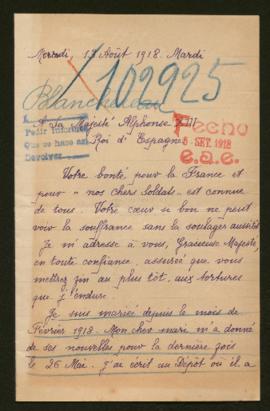 Mercredi, 13 Août 1918. Mardi
102925
Blancheteau
A Sa Majesté Alphonse XIII
Roi d'Espagne
Pedir informes
Que se hace así
Devolver
Fecho
5 SET. 1918
e.a.e.
Votre bonté pour la France et
pour "nos chers Soldats" est connue
de tous. Votre cœur si bon ne peut
voir la souffrance sans la soulager aussitôt.
Je m'adresse à vous, Gracieuse Majesté,
en toute confiance, assurée que vous
mettrez fin au plus tôt, aux tortures
que j'endure.
Je suis mariée depuis le mois de
Février 1918. Mon cher mari m'a donné
de ses nouvelles pour la dernière fois
le 26 Mai. J'ai écrit au Dépôt où il a